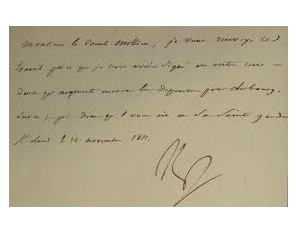 Monsieur le Comte Mollien, je vous renvoye ce
travail parce que je crois avoir signé un autre
qui augmente encore les dépenses pour cherbourg.
Sur ce je prie Dieu qu'il vous ait en Sa Sainte garde
St Cloud le 14 novembre 1811.